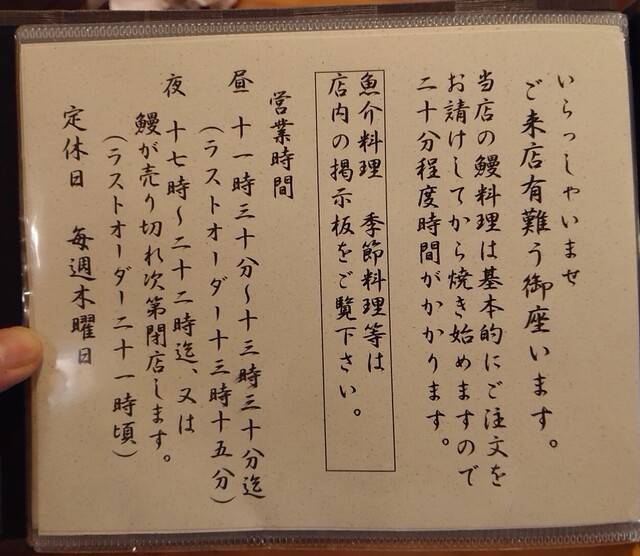 いらっしゃいませ
ご来店有難う御座います。
当店の鰻料理は基本的にご注文を
お請けしてから焼き始めますので
二十分程度時間がかかります。
魚介料理 季節料理等は
店内の掲示板をご覧下さい。
営業時間
昼 十一時三十分～十三時三十分迄
(ラストオーダー十三時十五分)
夜 十七時～二十二時迄、又は
鰻が売り切れ次第閉店します。
(ラストオーダー二十一時頃)
定休日 毎週木曜日